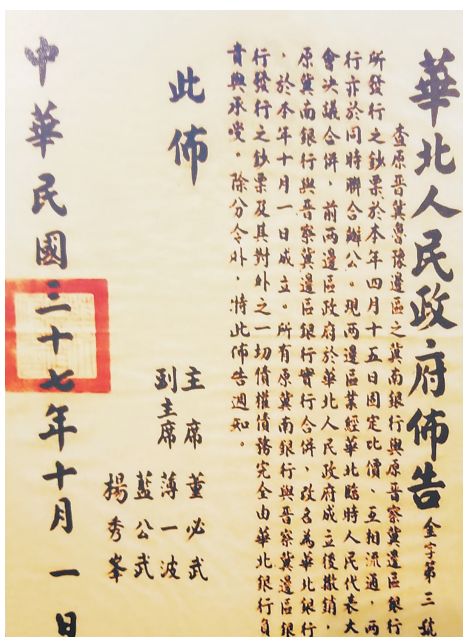 華北人民政府佈告 金字第三號
查原晉冀魯豫邊區之冀南銀行與原晉察冀邊區銀行
所發行之鈔票於本年四月十五日固定比價、互相流通，兩
行亦於同時聯合辦公。現兩邊區業經華北臨時人民代表大
會決議合併，前兩邊區政府於華北人民政府成立後撤銷，
原冀南銀行與晉察冀邊區銀行實行合併，改名為華北銀行
，於本年十月一日成立。所有原冀南銀行與晉察冀邊區銀
行發行之鈔票及其對外之一切債權債務完全由華北銀行負
責與承受。除分令外，特此佈告週知。
此佈
主席 董必武
副主席 薄一波
藍公武
楊秀峯
中華民國三十七年十月一日